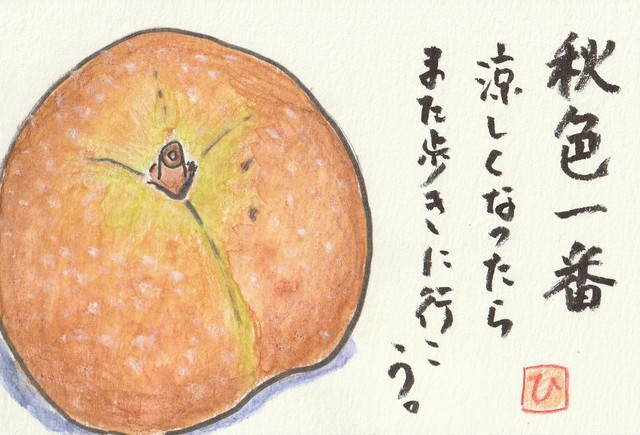 秋色一番
涼しくなったら
また歩きに行こ
う。
ひ